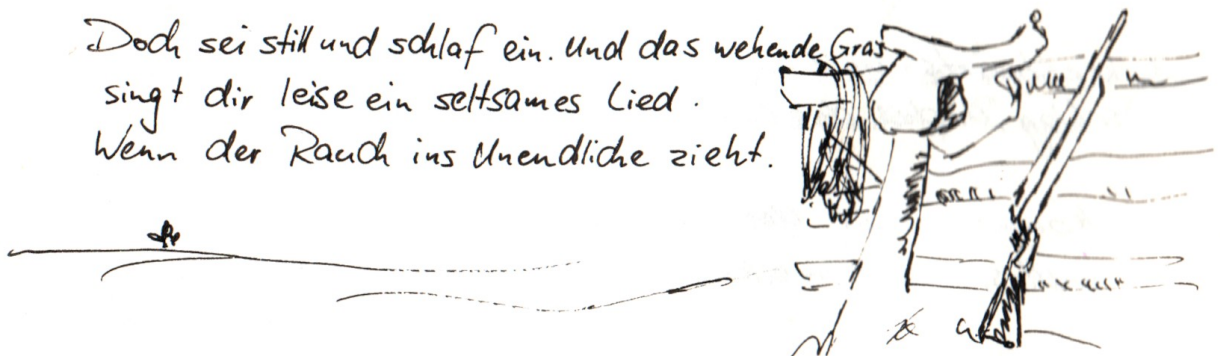 Doch sei still und schlaf ein. Und das wehende Gras
singt dir leise ein seltsames Lied.
Wenn der Rauch ins Unendliche zieht.